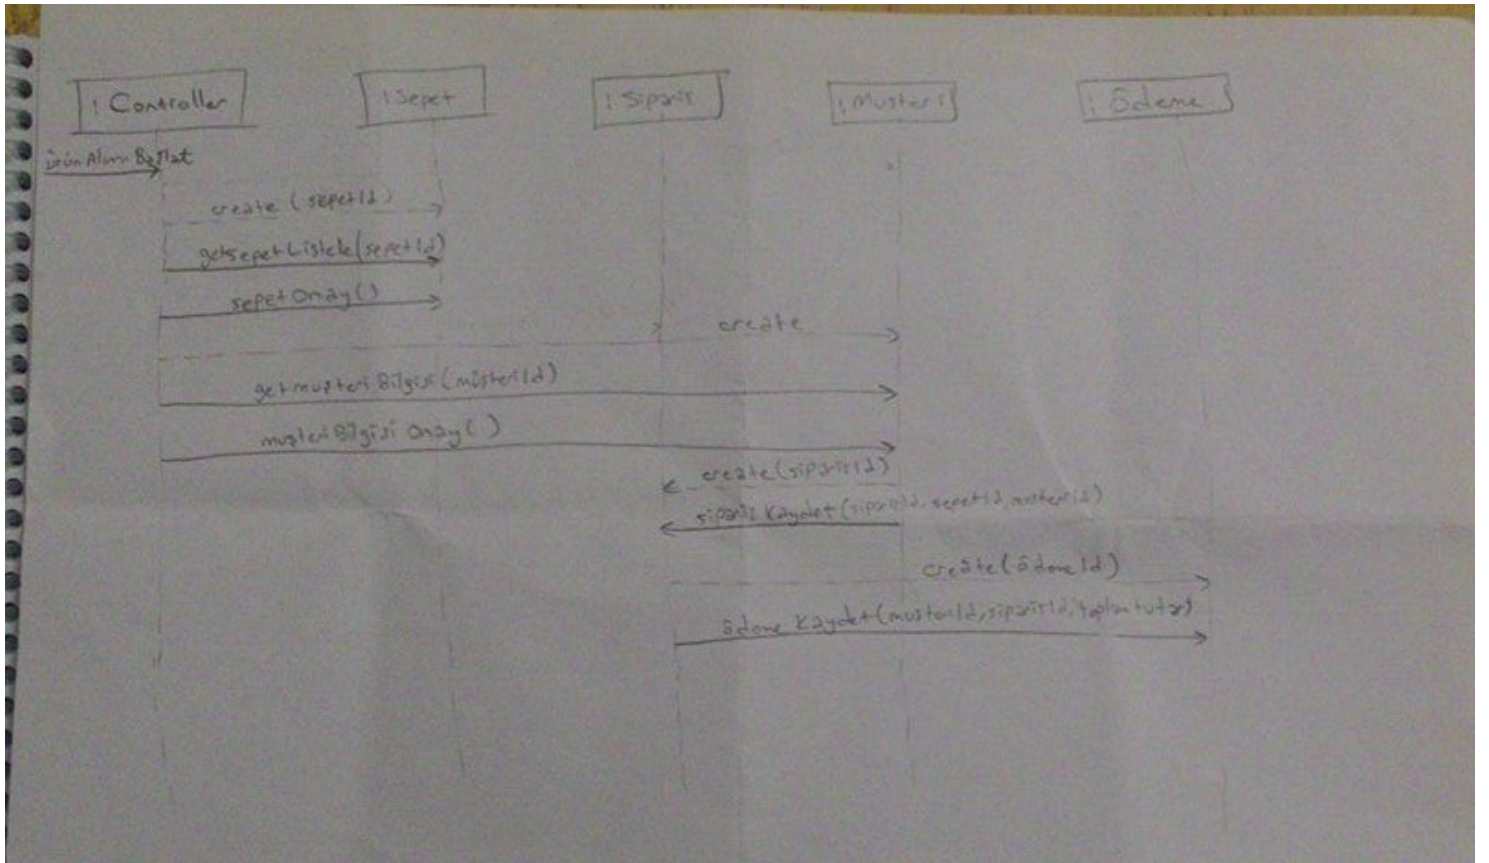 : Controller
: Sepet
: Sipariş
: Musteri
: Ödeme
ürün Alımı Başlat
create (sepetId)
getsepetListele(sepetId)
sepetOnay()
create
getmüşteriBilgisi(müsteriId)
müşteriBilgisi Onay( )
create(siparisId)
sipariş Kaydet(siparisId, sepetId, musteriId)
create(ödemeId)
ödeme Kaydet(musteriId, siparisId, toplamtutar)